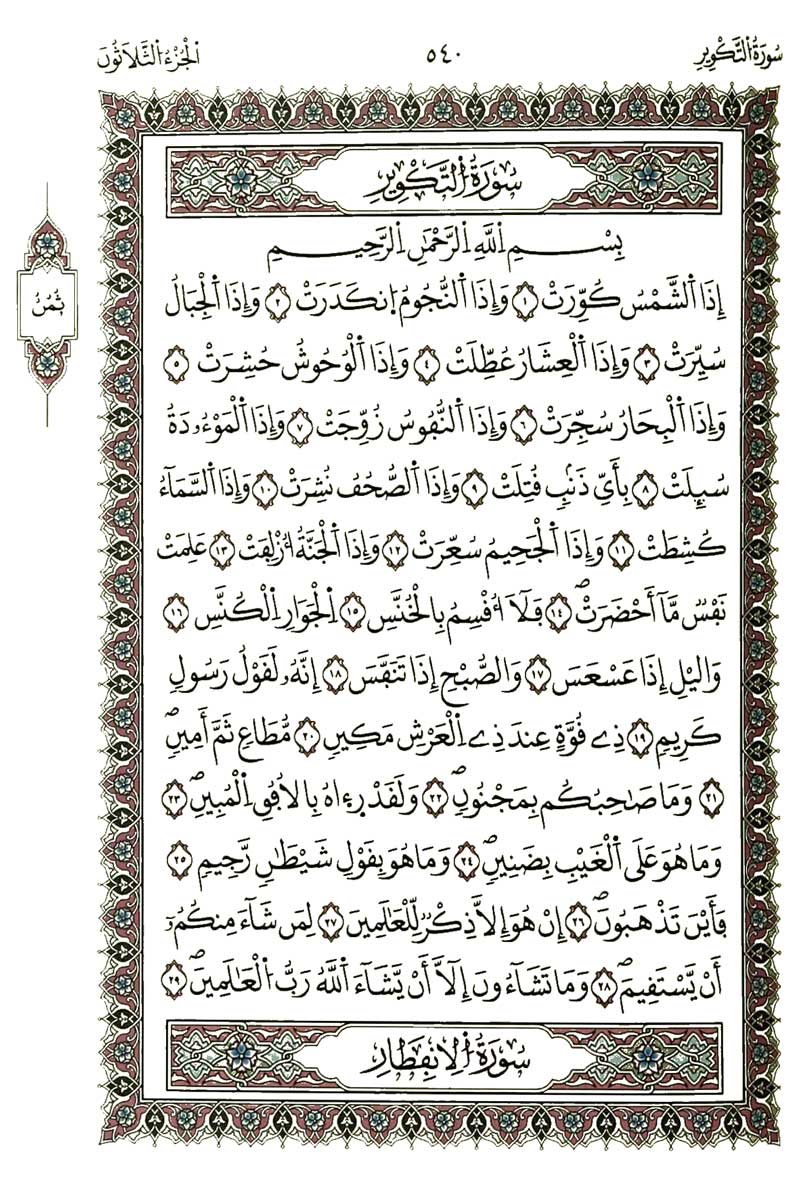 سُورَةُ التَّكْوِيرِ ٥٤٠ الْجُزْءُ الثَّلَاثُونَ
سُورَةُ التَّكْوِيرِ
بِسْمِ اِللَّهِ اِلرَّحْمَٰنِ اِلرَّحِيمِ
إِذَا اَلشَّمْسُ كُوِّرَتْ ١ وَإِذَا اَلنُّجُومُ اُ۪نكَدَرَتْ ٢ وَإِذَا اَلْجِبَالُ
ثُمُنُ
سُيِّرَتْ ٣ وَإِذَا اَلْعِشَارُ عُطِّلَتْ ٤ وَإِذَا اَلْوُحُوشُ حُشِرَتْ ٥
وَإِذَا اَلْبِحَارُ سُجِّرَتْ ٦ وَإِذَا اَلنُّفُوسُ زُوِّجَتْ ٧ وَإِذَا اَلْمَوْءُۥدَةُ
سُئِلَتْ ٨ بِأَيِّ ذَنۢبٖ قُتِلَتْ ٩ وَإِذَا اَلصُّحُفُ نُشِرَتْ ١٠ وَإِذَا اَلسَّمَآءُ
كُشِطَتْ ١١ وَإِذَا اَلْجَحِيمُ سُعِّرَتْ ١٢ وَإِذَا اَلْجَنَّةُ أُزْلِفَتْ ١٣ عَلِمَتْ
نَفْسٞ مَّآ أَحْضَرَتْۖ ١٤ فَلَآ أُقْسِمُ بِالْخُنَّسِ ١٥ اِلْجَوَارِ اِلْكُنَّسِ ١٦
وَاليْلِ إِذَا عَسْعَسَ ١٧ وَالصُّبْحِ إِذَا تَنَفَّسَ ١٨ إِنَّهُۥ لَقَوْلُ رَسُولٖ
كَرِيمٖ ١٩ ذِے قُوَّةٍ عِندَ ذِے اِلْعَرْشِ مَكِينٖ ٢٠ مُّطَاعٖ ثَمَّ أَمِينٖۖ
٢١ وَمَا صَٰحِبُكُم بِمَجْنُونٖۖ ٢٢ وَلَقَدْ رِءَاهُ بِالْأُفُقِ اِلْمُبِينِۖ ٢٣
وَمَا هُوَ عَلَى اَلْغَيْبِ بِضَنِينٖۖ ٢٤ وَمَا هُوَ بِقَوْلِ شَيْطَٰنٖ رَّجِيمٖ ٢٥
فَأَيْنَ تَذْهَبُونَۖ ٢٦ إِنْ هُوَ إِلَّا ذِكْرٞ لِّلْعَٰلَمِينَ ٢٧ لِمَن شَآءَ مِنكُمُۥٓ
أَنْ يَّسْتَقِيمَۖ ٢٨ وَمَا تَشَآءُونَ إِلَّآ أَنْ يَّشَآءَ اَللَّهُ رَبُّ اُلْعَٰلَمِينَۖ ٢٩
سُورَةُ الِانفِطَارِ